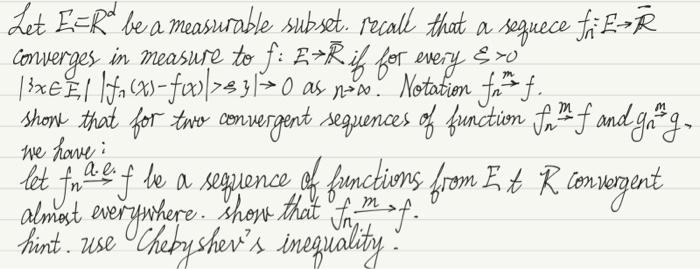 Let E=ℝᵈ be a measurable subset. recall that a sequece fₙ: E→ℝ̄
converges in measure to f: E→ℝ̄ if for every ε>0
|{x∈E| |fₙ(x)-f(x)|>ε}|→0 as n→∞. Notation fₙ →ᵐ f.
show that for two convergent sequences of function fₙ →ᵐ f and gₙ →ᵐ g,
we have:
let fₙ →ᵃ·ᵉ· f be a sequence of functions from E t ℝ convergent
almost everywhere. show that fₙ →ᵐ f.
hint. use Chebyshev's inequality.